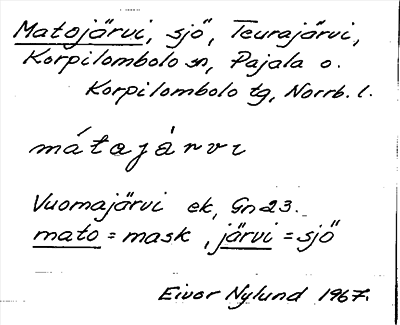 Matojärvi, sjö, Teurajärvi,
Korpilombolo sn, Pajala o.
Korpilombolo tg, Norrb. l.
mátajárvi
Vuomajärvi ek, Gn 23.
mato = mask, järvi = sjö
Eivor Nylund 1967.